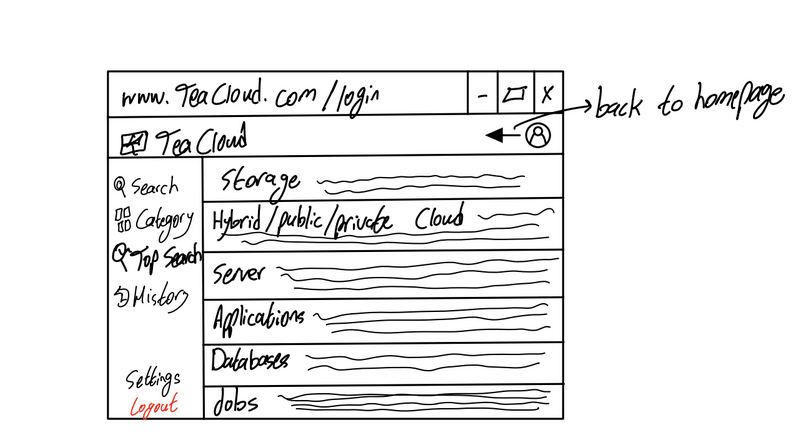 www.TeaCloud.com/login
- X
back to homepage
TeaCloud
Search
Category
Top Search
History
Settings
Logout
Storage
Hybrid/public/private Cloud
Server
Applications
Databases
Jobs